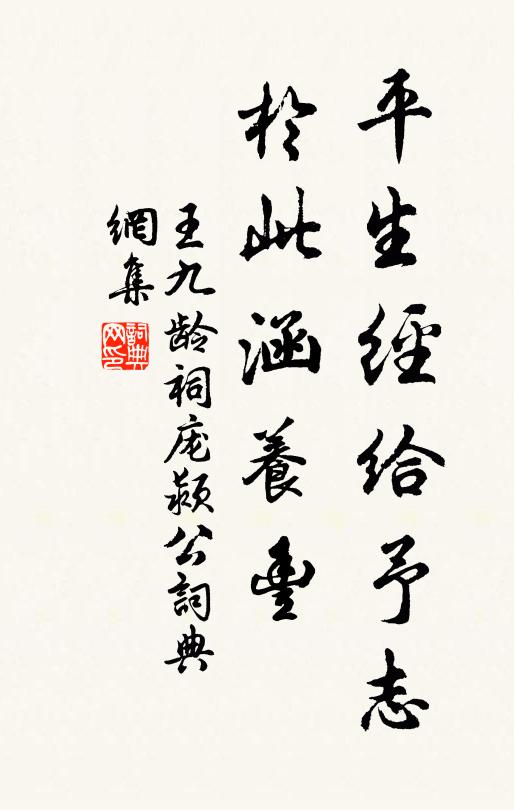 平生經给予志
於此涵養豊
王九龄祠庞颍公詞典
網集
詞典網印